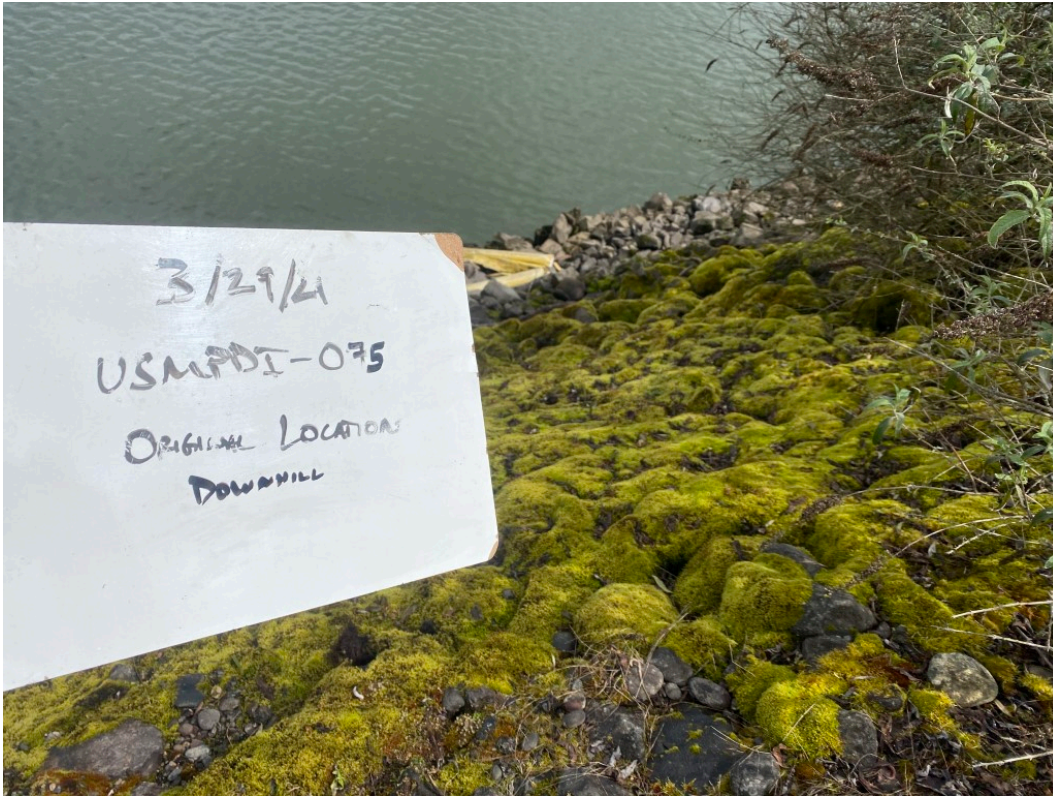 3/29/21
USMPDI-075
ORIGINAL LOCATION
DOWNHILL